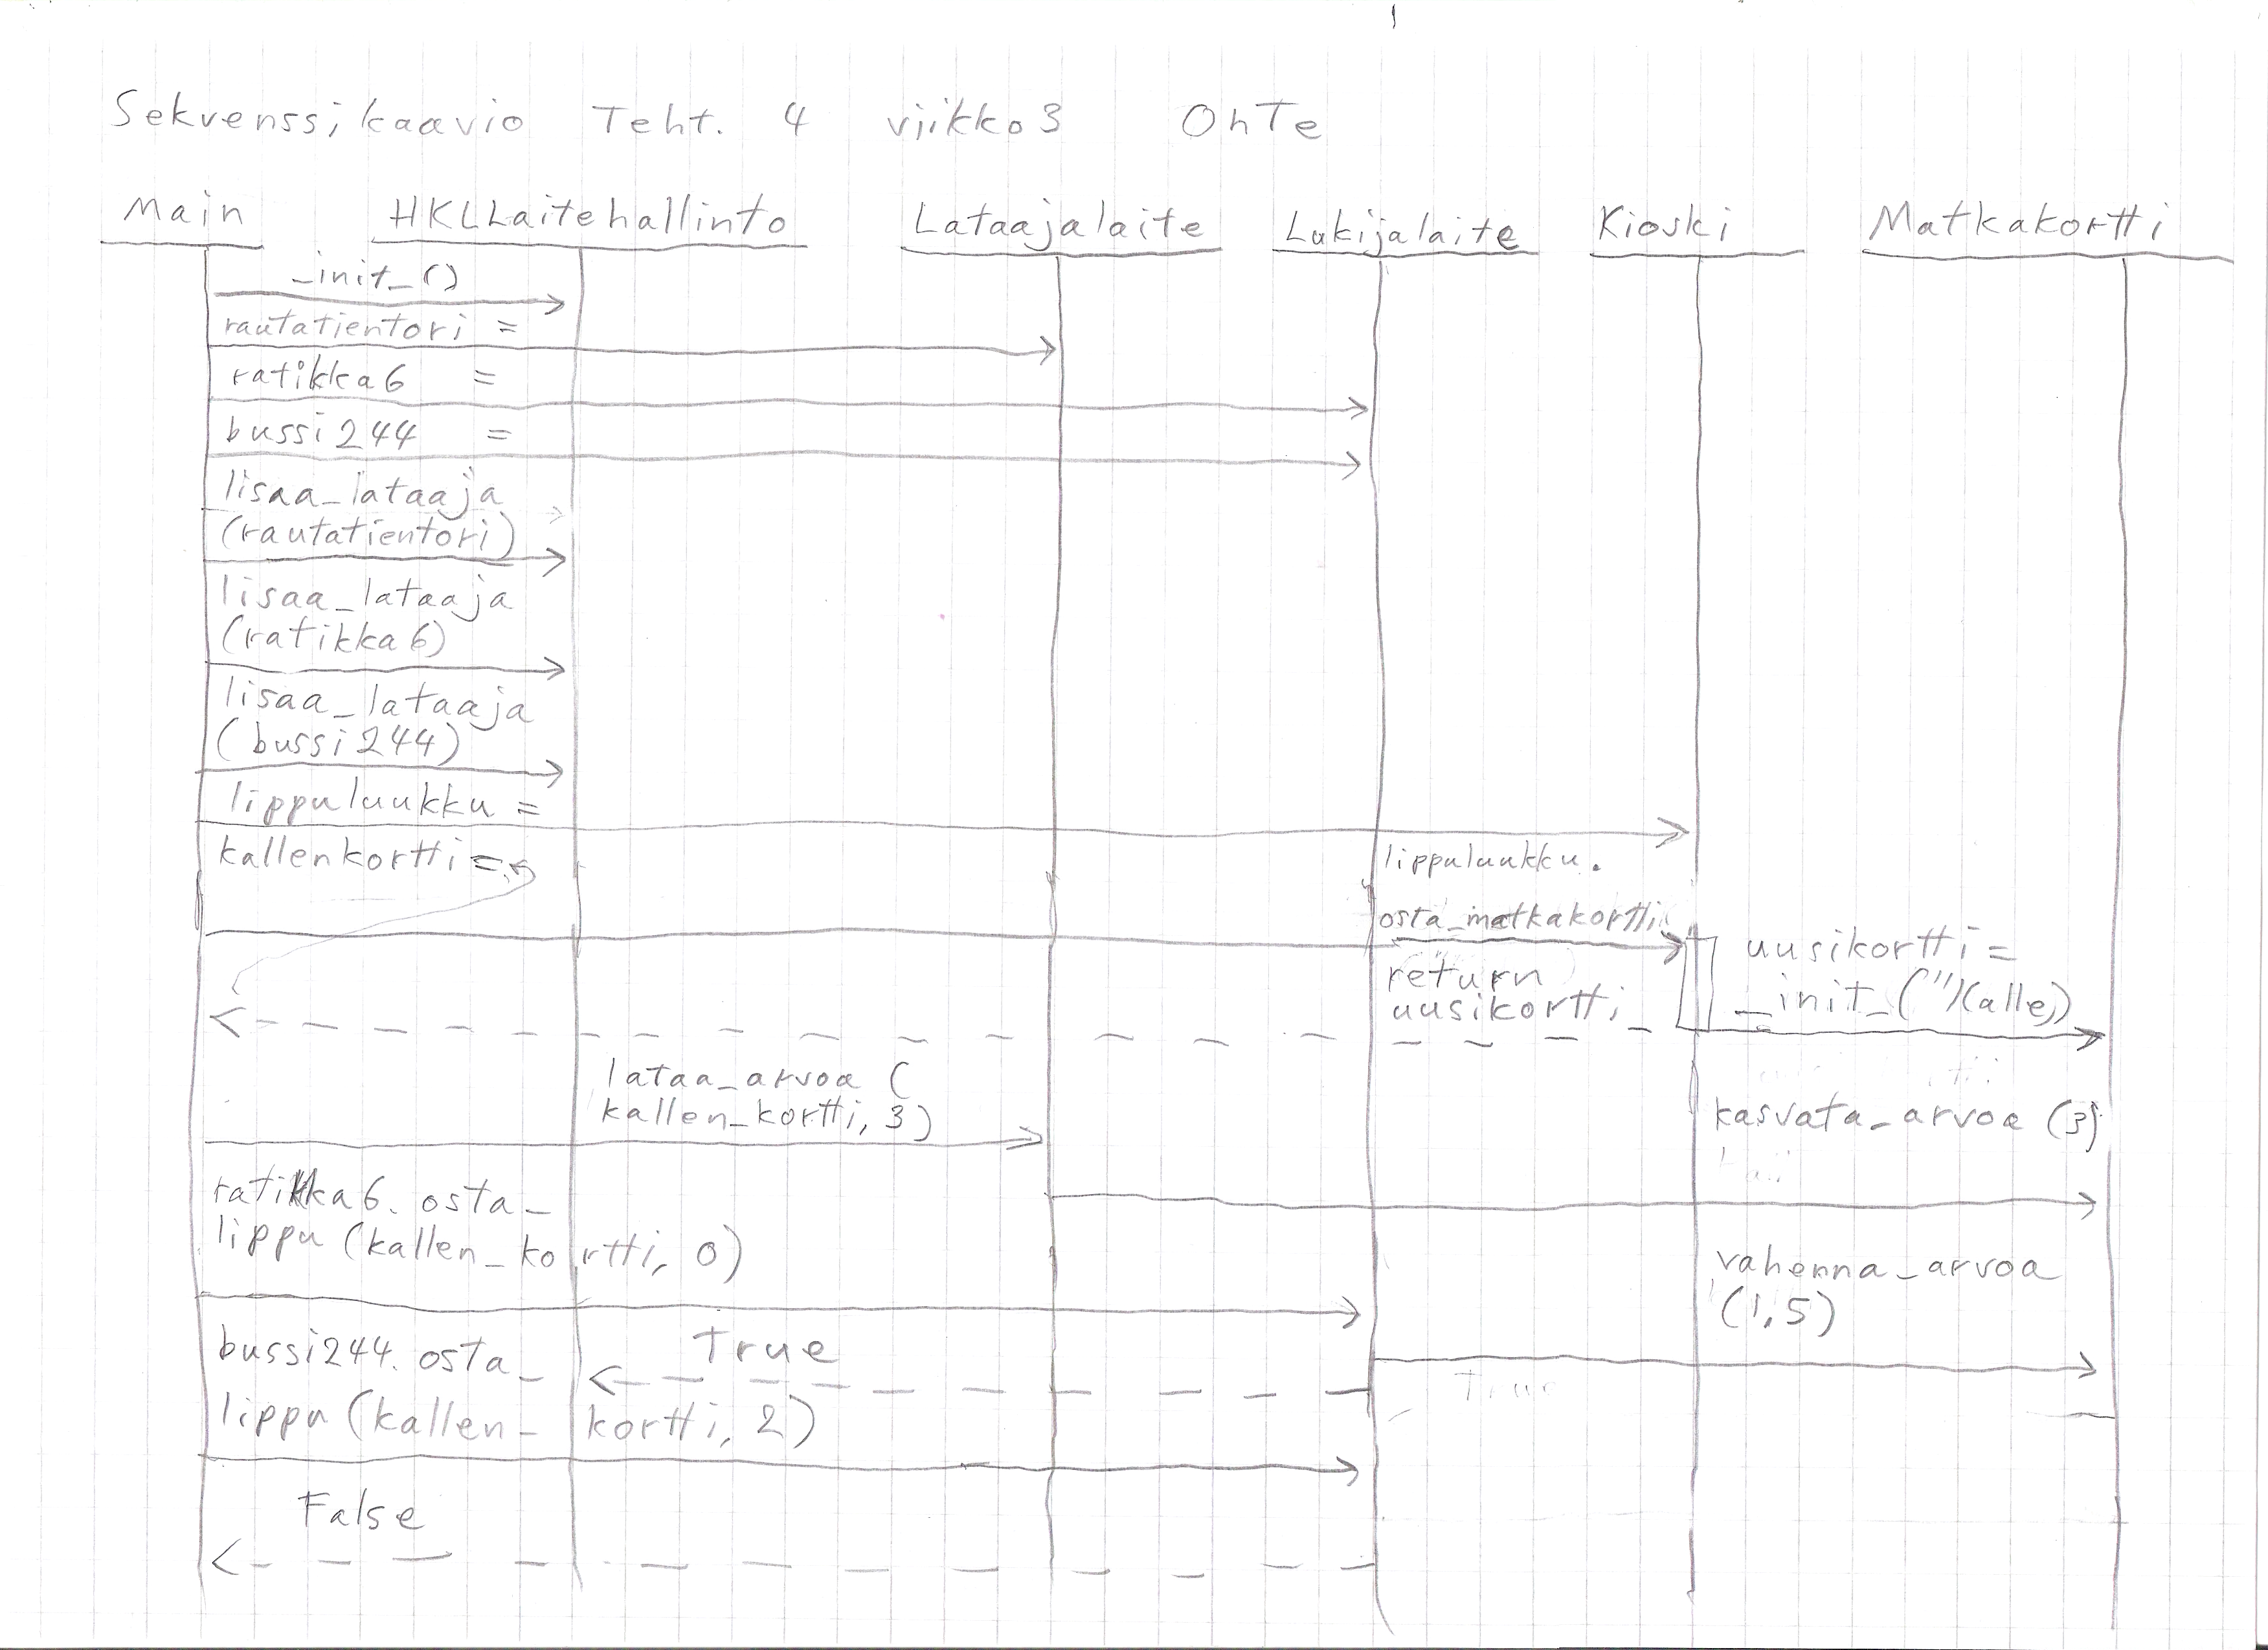 Sekvenssikaavio Teht. 4 viikko3 OhTe
Main HKLLaitehallinto Lataajalaite Lukijalaite Kioski Matkakortti
_init_()
rautatientori =
ratikka6 =
bussi244 =
lisaa_lataaja
(rautatientori)
lisaa_lataaja
(ratikka6)
lisaa_lataaja
(bussi244)
lippuluukku =
kallenkortti =
lippuluukku.
osta_matkakortti
return
uusikortti
uusikortti =
_init_("Kalle")
lataa_arvoa (
kallen_kortti, 3)
kasvata_arvoa (3)
ratikka6. osta_
lippu (kallen_kortti, 0)
vahenna_arvoa
(1,5)
True
bussi244. osta_
lippu (kallen_kortti, 2)
False